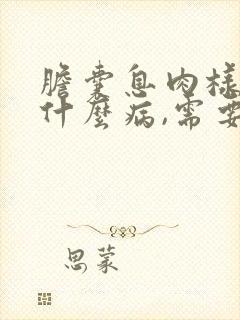 膽囊息肉樣
什麼病,需要
思蒙